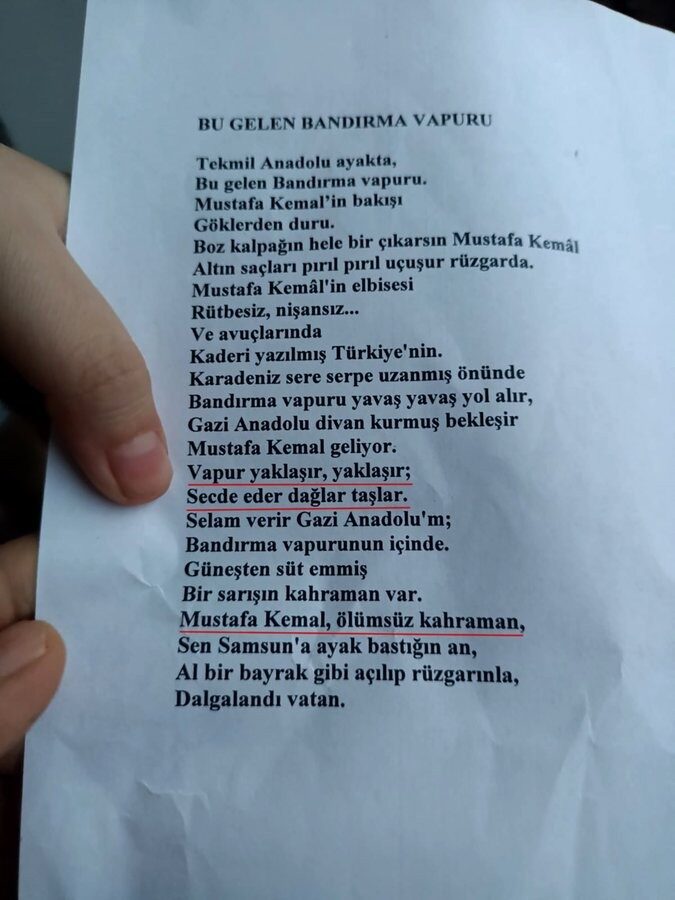 BU GELEN BANDIRMA VAPURU
Tekmil Anadolu ayakta,
Bu gelen Bandırma vapuru.
Mustafa Kemal'in bakışı
Göklerden duru.
Boz kalpağın hele bir çıkarsın Mustafa Kemâl
Altın saçları pırıl pırıl uçuşur rüzgarda.
Mustafa Kemâl'in elbisesi
Rütbesiz, nişansız...
Ve avuçlarında
Kaderi yazılmış Türkiye'nin.
Karadeniz sere serpe uzanmış önünde
Bandırma vapuru yavaş yavaş yol alır,
Gazi Anadolu divan kurmuş bekleşir
Mustafa Kemal geliyor.
Vapur yaklaşır, yaklaşır;
Secde eder dağlar taşlar.
Selam verir Gazi Anadolu'm;
Bandırma vapurunun içinde.
Güneşten süt emmiş
Bir sarışın kahraman var.
Mustafa Kemal, ölümsüz kahraman,
Sen Samsun'a ayak bastığın an,
Al bir bayrak gibi açılıp rüzgarınla,
Dalgalandı vatan.